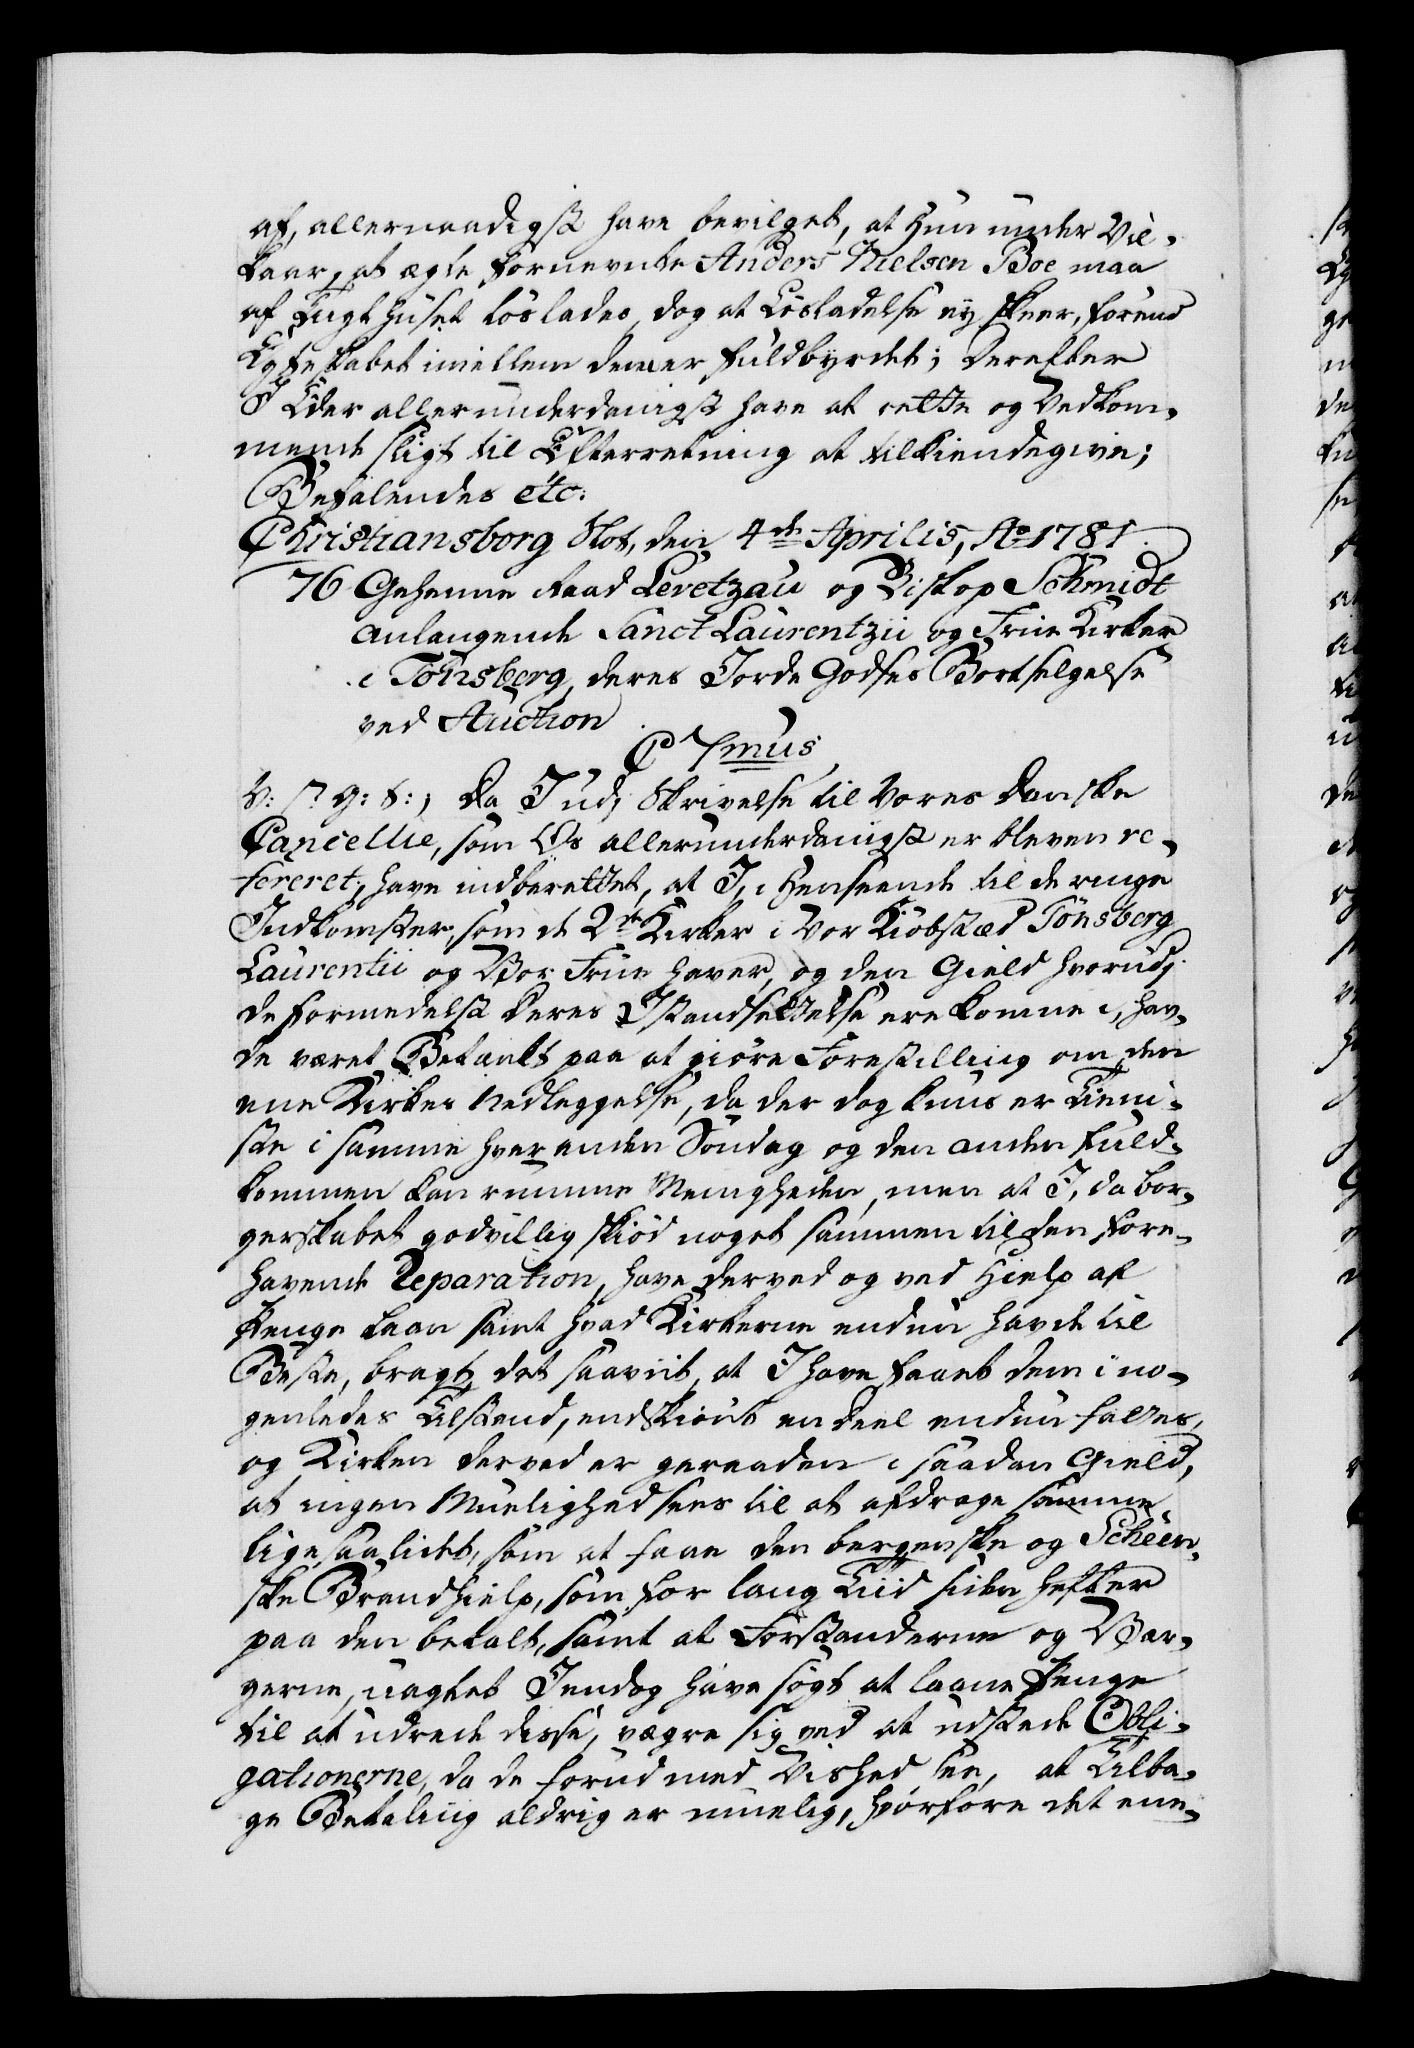 af, allernaadigst have bevilget, at Hun under Vil-
kaar, at ægte fornevnte Anders Nielsen Boe maa
af Tugthuset löslades, dog at Lösladelse ey skeer, förend
Egteskabet imellem dem er fuldbyrdet; Derefter
I Eder allerunderdanigst have at rette og Vedkom-
mende sligt til Efterretning at tilkiendegive;
Befalendes etc:
Christiansborg Slot, den 4de Aprilis, Ao 1781.
76 Geheime Raad Levetzau og Biskop Schmidt
anlangende Sanct Laurentzii og Frue Kirker
i Tönsberg, deres Jorde Godses Bortselgelse
ved Auction
C 7mus
V: S: G: T:, Da I udj Skrivelse til Vores Danske
Cancellie, som Os allerunderdanigst er bleven re-
fereret, have indberettet, at I, i Henseende til de ringe
Indkomster, som de 2de Kirker i Vor Kiöbstæd Tönsberg
Laurentii og Vor Frue haver, og den Gield hvorudj
de formedelst deres Istandsettelse ere komne i, hav-
de været Betænkt paa at giöre Forestilling om den
ene Kirkes Nedleggelse, da der dog kuns er Tieni-
ste i samme hver anden Söndag og den anden fuld-
kommen kan rumme Menigheden, men at I, da bor-
gerskabet godvillig skiöd noget sammen til den fore-
havende Reparation, have derved og ved Hielp af
Penge Laan samt hvad Kirkerne endnu havde til
Beste, bragt det saaviit, at I have faaet dem i no-
genledes Tilstand, endskiönt en deel endnu fattes,
og Kirken derved er geraaden i saadan Gield,
at ingen Muelighed sees til at afdrage samme
ligesaalidt, som at faae den bergenske og Scheen-
ske Brandhielp, som for lang Tiid siden hefter
paa den betalt, samt at Forstanderne og Bor-
gerne, uagtet I endog have sögt at laane Penge
til at udrede disse, vægre sig ved at udstede Obli-
gationerne, da de forud med Vished see, at Tilba-
ge Betaling aldrig er muelig, hvorfore det ene-